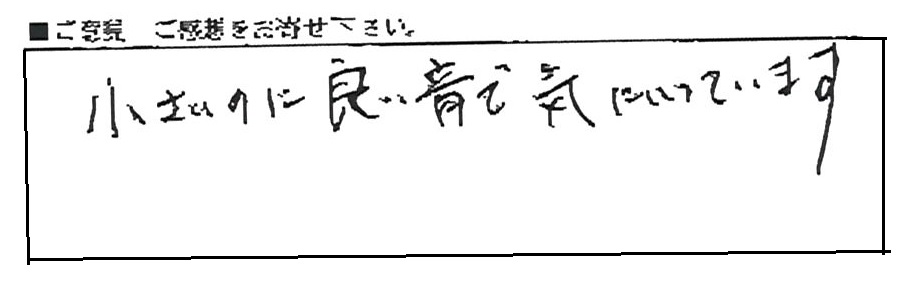 ■ご意見　ご感想をお寄せ下さい。
小さいのに良い音で気にいっています